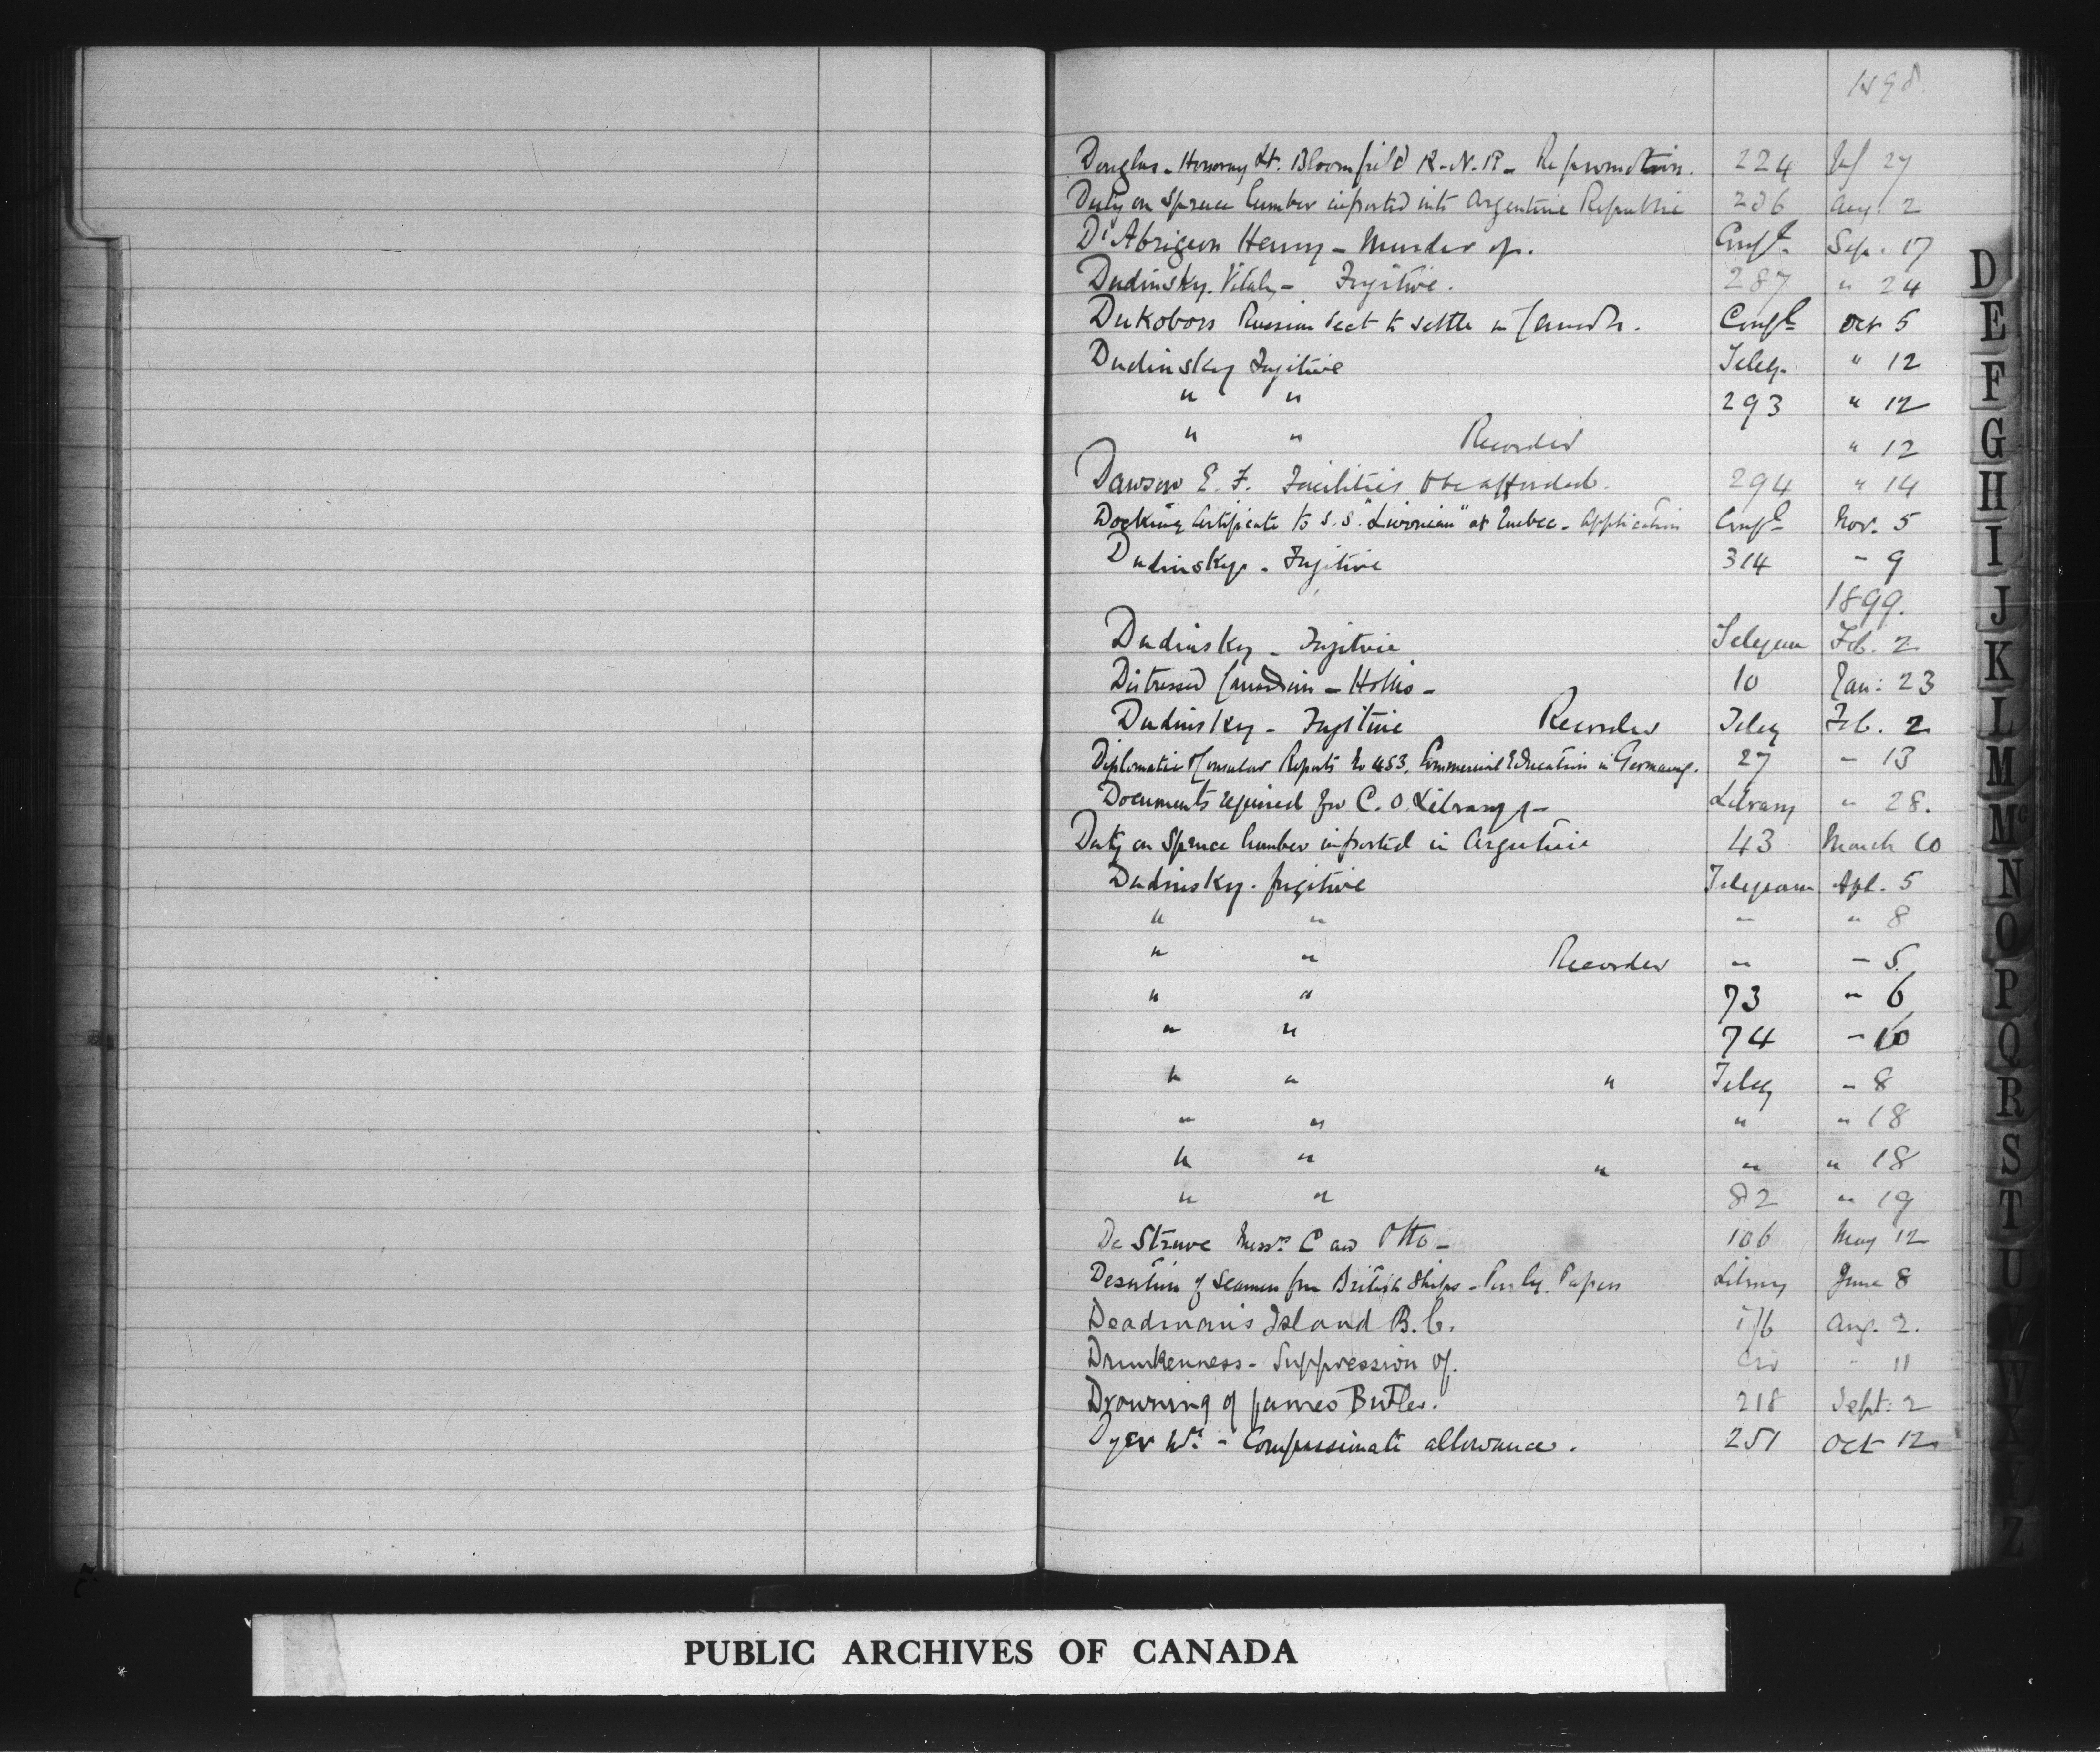 1898.
Douglas - Honorary Lt. Bloomfield R.N.R. - Re promotion. 224 Jul 27
Duty on Spruce lumber imported into Argentine Republic 236 Aug: 2
D'Abrigeon Henry - Murder of. Confl. Sep. 17
Dudinsky. Vitaly - Fugitive. 287 " 24
Dukobors Russian Sect to settle in Canada. Confl Oct 5
Dudinsky Fugitive Teleg. " 12
" " 293 " 12
" " Recorder " 12
Dawson E. F. Facilities to be afforded. 294 " 14
Docking Certificate to S.S. "Livonian" at Quebec - Application Confl Nov. 5
Dudinsky. - Fugitive 314 - 9
1899.
Dudinsky - Fugitive Telegram Feb. 2
Distressed Canadian - Hollis - 10 Jan: 23
Dudinsky - Fugitive Recorder Teleg Feb. 2
Diplomatic & Consular Reports No 453, Commercial Education in Germany. 27 - 13
Documents required for C. O. Library - Library " 28.
Duty on Spruce lumber imported in Argentine 43 March 10
Dudinsky. fugitive Telegram Apl. 5
" " " " 8
" " Recorder " - 5
" " 73 " 6
" " 74 - 10
" " " Teleg " 8
" " " " 18
" " " " " 18
" " 82 " 19
De Struve Messrs C and Otto - 106 May 12
Desertion of Seamen from British Ships - Parly. Papers Library June 8
Deadman's Island B.C. 176 Aug. 2.
Drunkenness - Suppression of. Cir " 11
Drowning of James Butler. 218 Sept: 2
Dyer Wm - Compassionate allowance. 251 Oct 12
D
E
F
G
H
I
J
K
L
M
Mc
N
O
P
Q
R
S
T
U
V
W
X
Y
Z
PUBLIC ARCHIVES OF CANADA